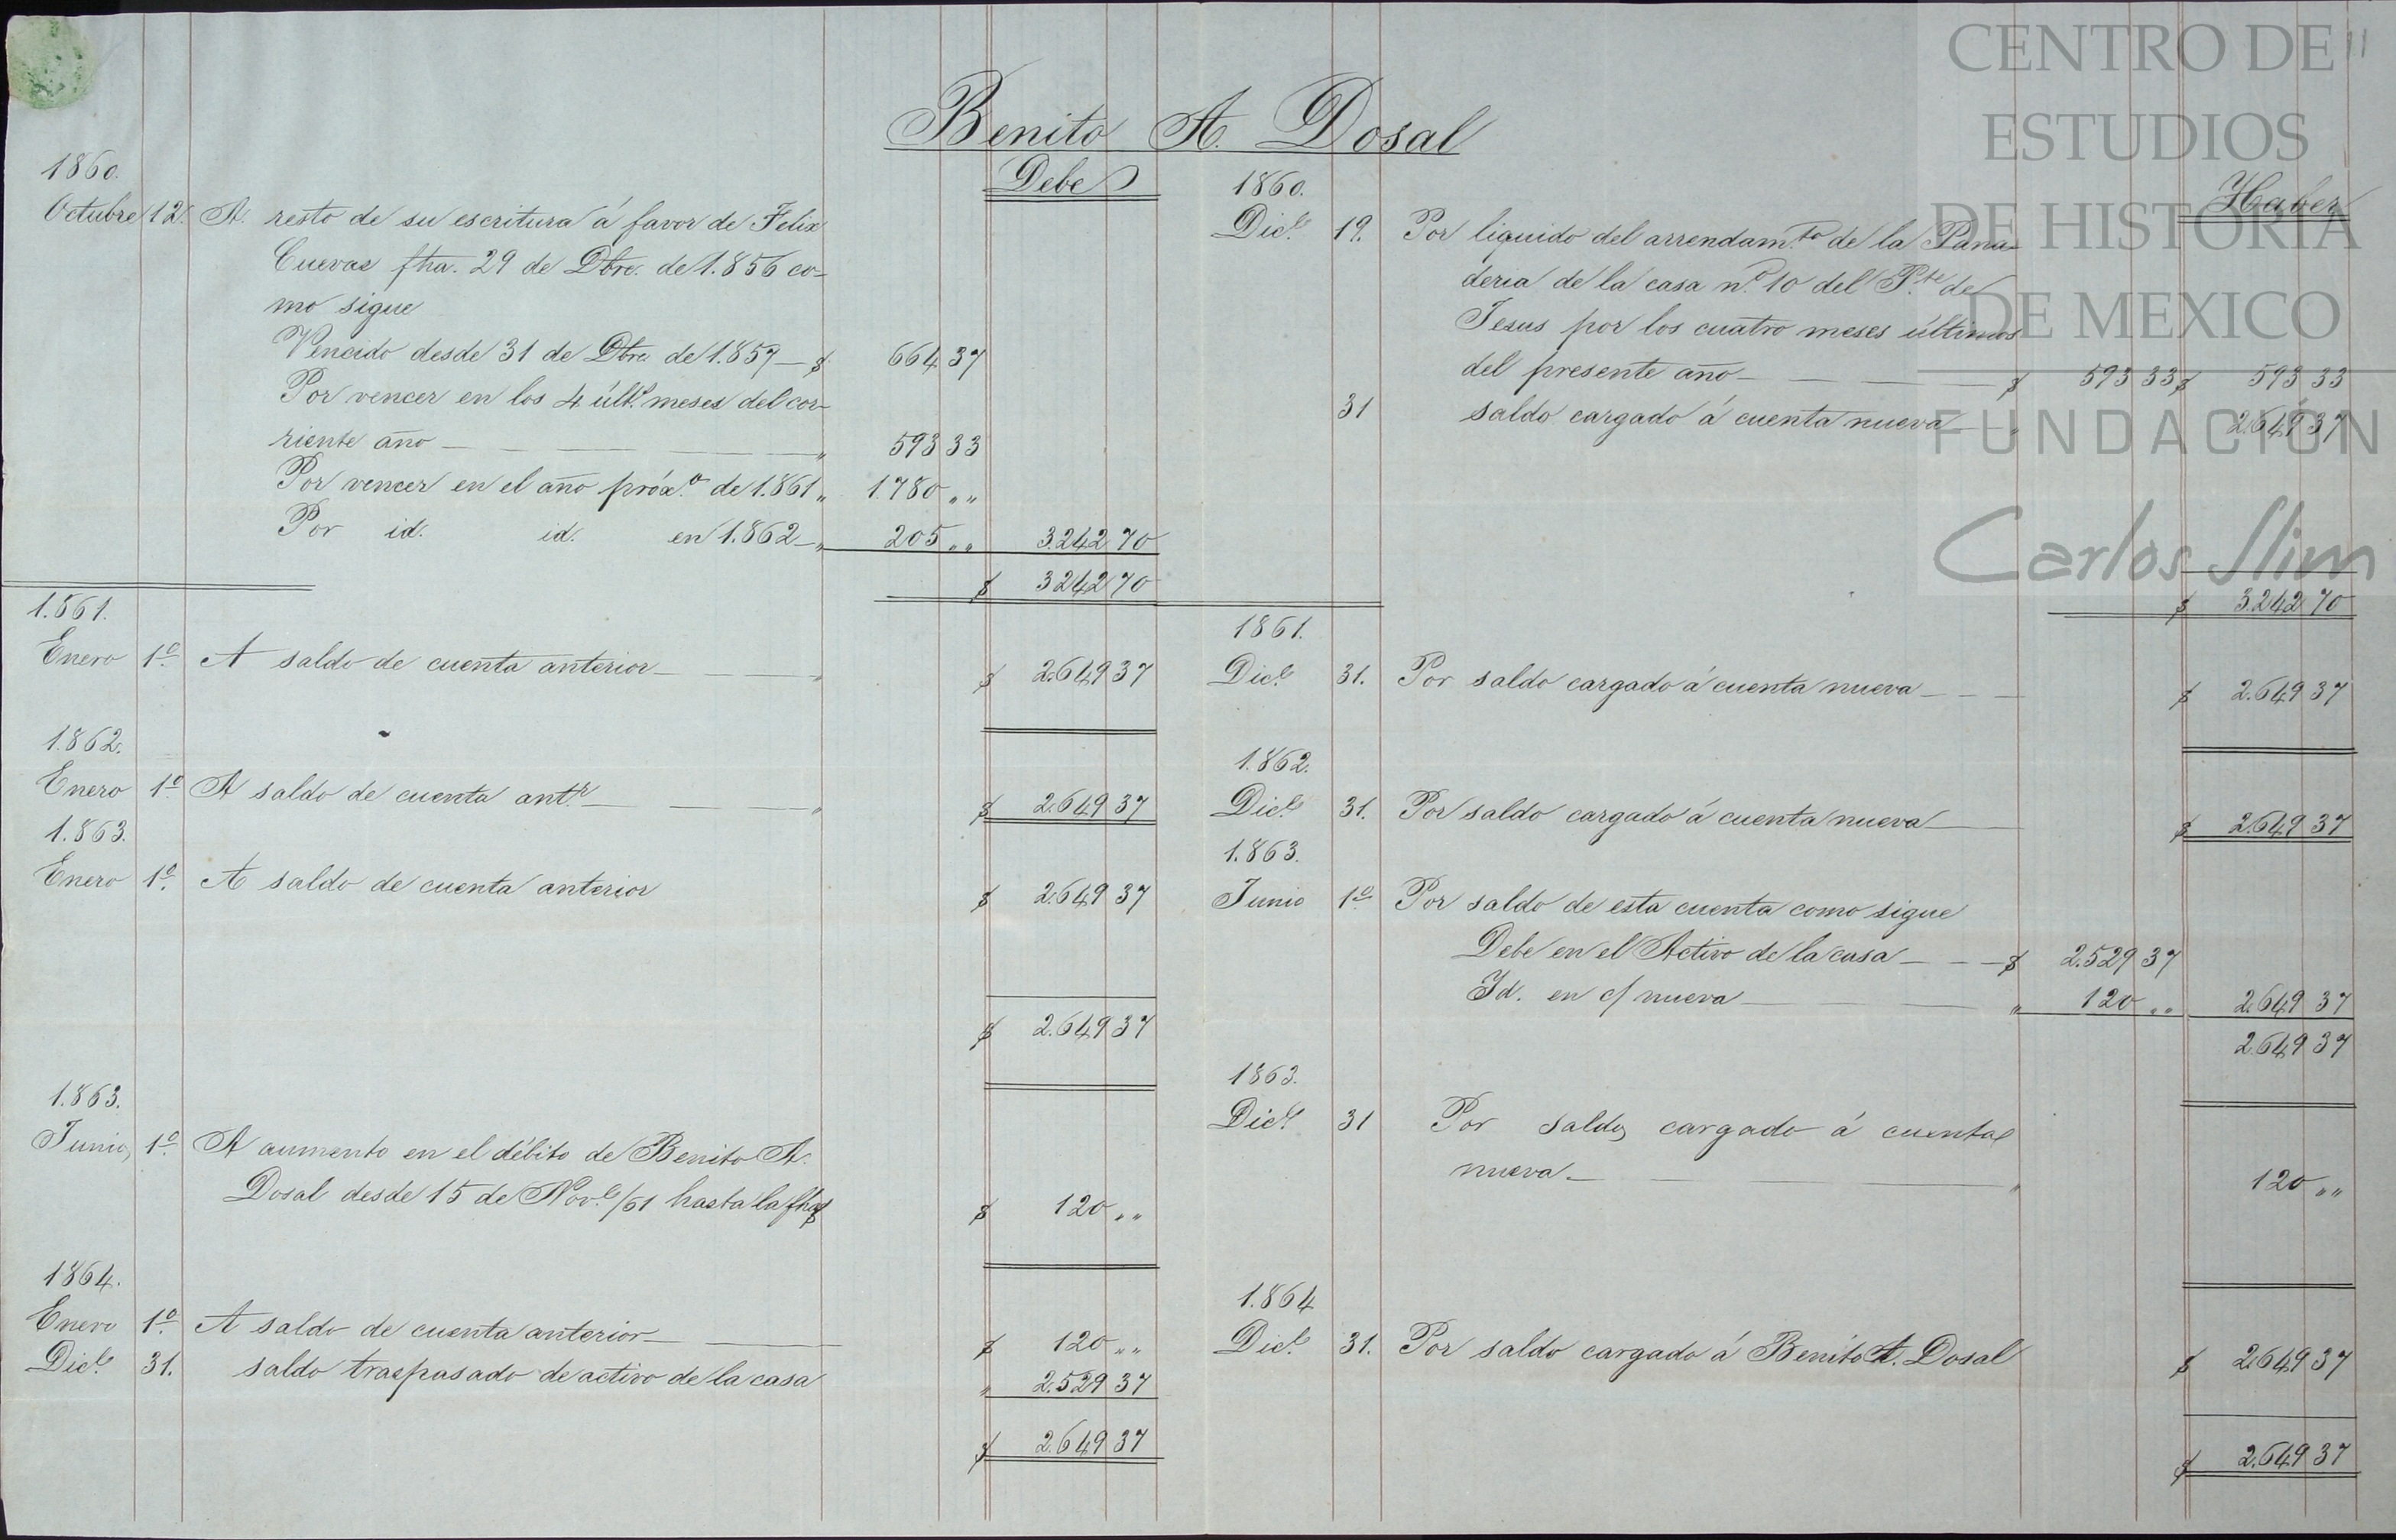 Benito A. Dosal
Debe
1860.
Octubre 12. A resto de su escritura á favor de Felix
Cuevas fha. 29 de Dbre. de 1.856 co-
mo sigue
Vencido desde 31 de Dbre. de 1.857 — $ 664 37
Por vencer en los 4 últ.s meses del cor-
riente año — — — — " 593 33
Por vencer en el año próx.o de 1.861 " 1.780 " "
Por id. id. en 1.862 — " 205 " " 3.242 70
$ 3242 70
1.561.
Enero 1º A saldo de cuenta anterior — — — " $ 2.649 37
1.862.
Enero 1º A saldo de cuenta ant.r — — — " $ 2.649 37
1.863.
Enero 1º A saldo de cuenta anterior $ 2.649 37
$ 2.649 37
1.863.
Junio 1º A aumento en el débito de Benito A.
Dosal desde 15 de Nov.e/61 hasta la fha $ $ 120 " "
1864.
Enero 1º A saldo de cuenta anterior — — $ 120 " "
Dic.e 31. saldo traspasado de activo de la casa " 2.529 37
$ 2.649 37
Haber
1860.
Dic.e 19. Por líquido del arrendam.to de la Pana-
deria de la casa n.º 10 del P.te de
Jesus por los cuatro meses últimos
del presente año — — — $ 593 33 $ 593 33
31 saldo cargado á cuenta nueva — " 2.649 37
$ 3.242 70
1861.
Dic.e 31. Por saldo cargado á cuenta nueva — — — $ 2.649 37
1.862.
Dic.e 31. Por saldo cargado á cuenta nueva — $ 2.649 37
1.863.
Junio 1º Por saldo de esta cuenta como sigue
Debe en el Activo de la casa — — — $ 2.529 37
Id. en c/ nueva — — — " 120 " " 2.649 37
2.649 37
1863.
Dic.e 31 Por saldo cargado á cuenta
nueva — — — " 120 " "
1.864
Dic.e 31. Por saldo cargado á Benito A. Dosal $ 2.649 37
$ 2.649 37
CENTRO DE
ESTUDIOS
DE HISTORIA
DE MEXICO
FUNDACIÓN
Carlos Slim